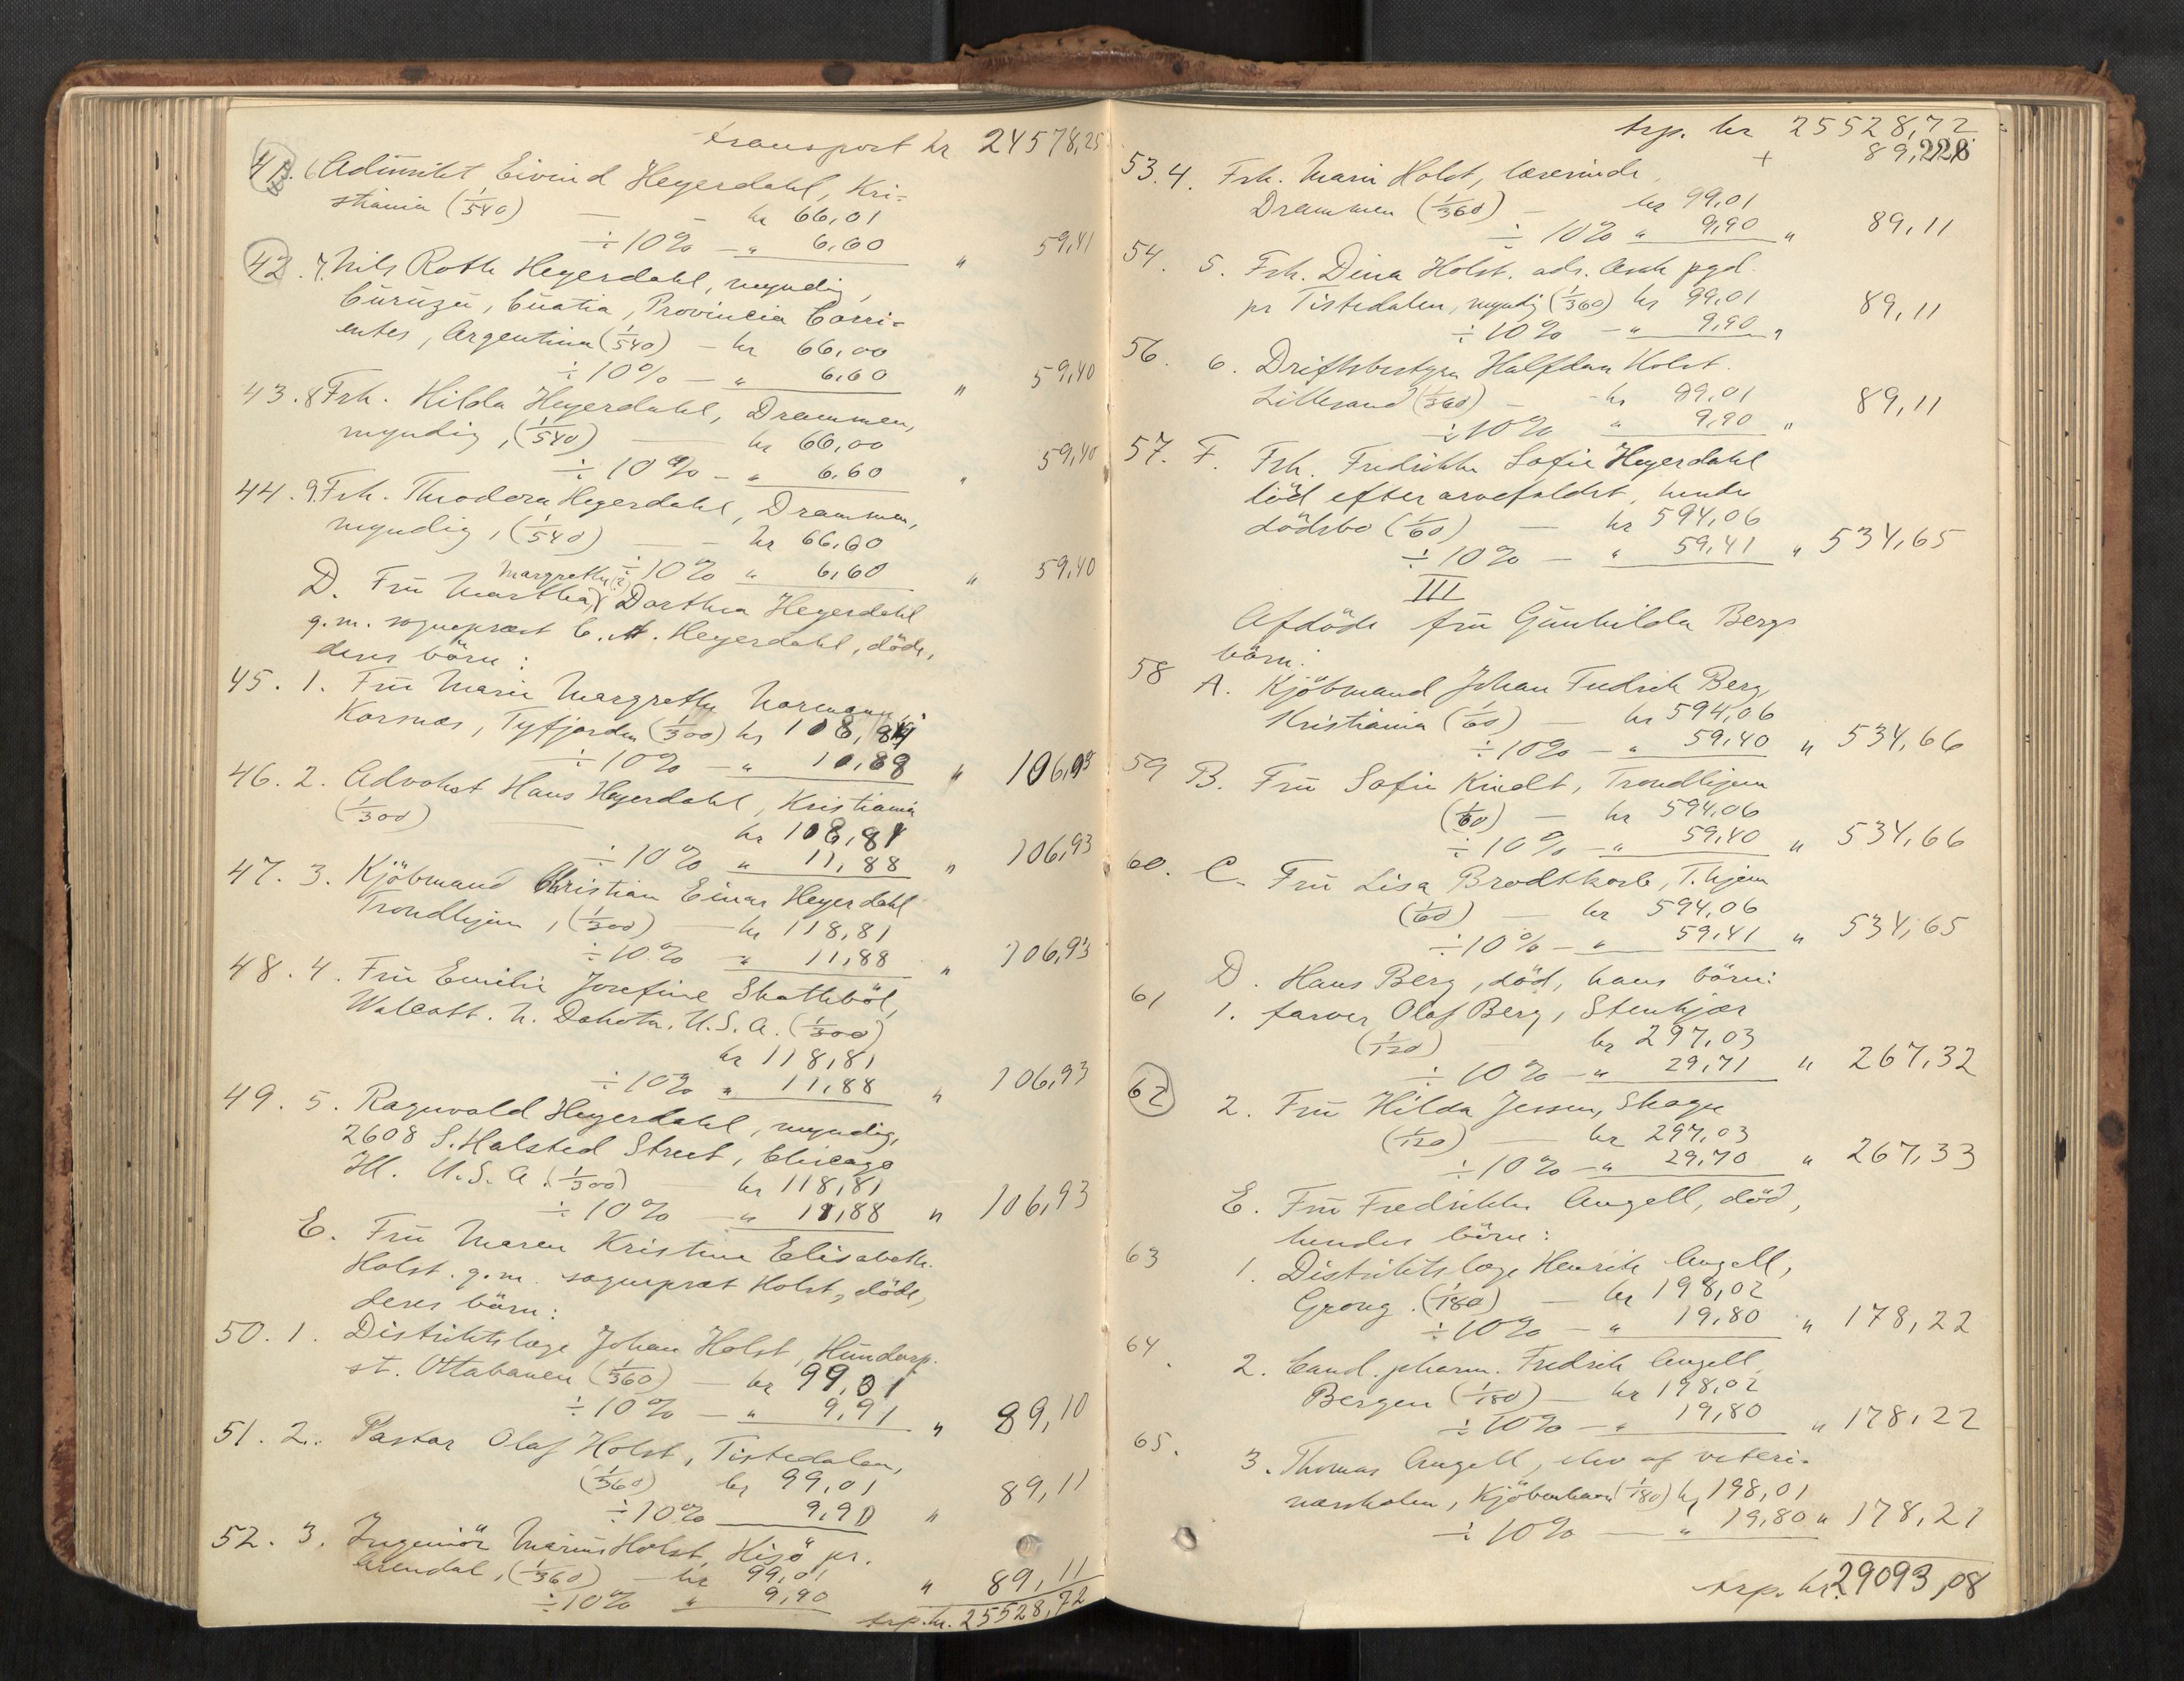 transport kr 24578,25
41. 6 Eivind Heyerdahl, Kri-
stiania (1/540) — kr 66,01
÷ 10% — " 6,60 " 59,41
42. 7. Nils Roth Heyerdahl, myndig,
Curuzu, Cuatia, Provincia Corri-
entes, Argentina (1/540) — kr 66,00
÷ 10% — " 6,60 " 59,40
43. 8 Frk. Hilda Heyerdahl, Drammen,
myndig, (1/540) — kr 66,00
÷ 10% — " 6,60 " 59,40
44. 9. Frk. Theodora Heyerdahl, Drammen,
myndig, (1/540) — kr 66,00
÷ 10% " 6,60 " 59,40
D. Fru Martha Margrethe (?) Dorthea Heyerdahl
g. m. sogneprest C. A. Heyerdahl, döde,
deres börn:
45. 1. Fru Marie Margrethe Normann,
Korsnes, Tyfjorden (1/300) kr 118,81
÷ 10% — " 11,88 " 106,93
46. 2. Advokat Hans Heyerdahl, Kristiania
(1/300) — kr 118,81
÷ 10% " 11,88 " 106,93
47. 3. Kjöbmand Christian Einar Heyerdahl
Trondhjem, (1/300) — kr 118,81
÷ 10% " 11,88 " 106,93
48. 4. Fru Emilie Josefine Skatteböl,
Walcott. N. Dakota. U.S.A. (1/300)
kr 118,81
÷ 10% " 11,88 " 106,93
49. 5. Ragnvald Heyerdahl, myndig,
2608 S. Halsted Street, Chicago
Ill. U.S.A. (1/300) — kr 118,81
÷ 10% — " 11,88 " 106,93
E. Fru Maren Kristine Elisabeth
Holst. g. m. sogneprst Holst, döde,
deres börn:
50. 1. Distriktslæge Johan Holst, Hundorp.
st. Ottabanen (1/360) — kr 99,01
÷ 10% — " 9,91 " 89,10
51. 2. Pastor Olaf Holst, Tistedalen,
(1/360) kr 99,01
÷ 10% 9,90 " 89,11
52. 3. Ingeniör Marius Holst, Hisö pr.
Arendal, (1/360) — kr 99,01
÷ 10% " 9,90 " 89,11
trp. kr. 25528,72
trp. kr 25528,72
+ 89,228
53. 4. Frk. Marie Holst, lærerinde,
Drammen (1/360) — kr 99,01
÷ 10% " 9,90 " 89,11
54. 5. Frk. Dina Holst. adr. Ask pgd.
pr Tistedalen, myndig (1/360) kr 99,01
÷ 10% — " 9,90 " 89,11
56. 6. Driftsbestyrer Halfdan Holst.
Lillesand (1/360) — kr 99,01
÷ 10% " 9,90 " 89,11
57. F. Frk. Fredrikke Sofie Heyerdahl
död efter arvefaldet, hendes
dödsbo (1/60) — kr 594,06
÷ 10% — " 59,41 " 534,65
III
Afdöde fru Gunhilda Bergs
börn:
58 A. Kjöbmand Johan Fredrik Berg,
Kristiania (1/60) — kr 594,06
÷ 10% — " 59,40 " 534,66
59 B. Fru Sofie Kindt, Trondhjem
(1/60) — kr 594,06
÷ 10% — " 59,40 " 534,66
60. C. Fru Lisa Brodtkorb, T.hjem
(1/60) — kr 594,06
÷ 10% — " 59,41 " 534,65
D. Hans Berg, död, hans börn:
61 1. farver Olaf Berg, Stenkjær
(1/120) — kr 297,03
÷ 10% — " 29,71 " 267,32
62 2. Fru Hilda Jessen, Skage
(1/120) — kr 297,03
÷ 10% — " 29,70 " 267,33
E. Fru Fredrikke Angell, död,
hendes börn:
63 1. Distriktslæge Henrik Angell,
Grong. (1/180) — kr 198,02
÷ 10% — " 19,80 " 178,22
64. 2. Cand. pharm. Fredrik Angell,
Bergen (1/180) — kr 198,02
÷ 10% — " 19,80 " 178,22
65. 3. Thomas Angell, elev af veteri-
nærskolen, Kjöbenhavn (1/180) kr 198,01
÷ 10% — " 19,80 " 178,21
trp. kr. 29093,08